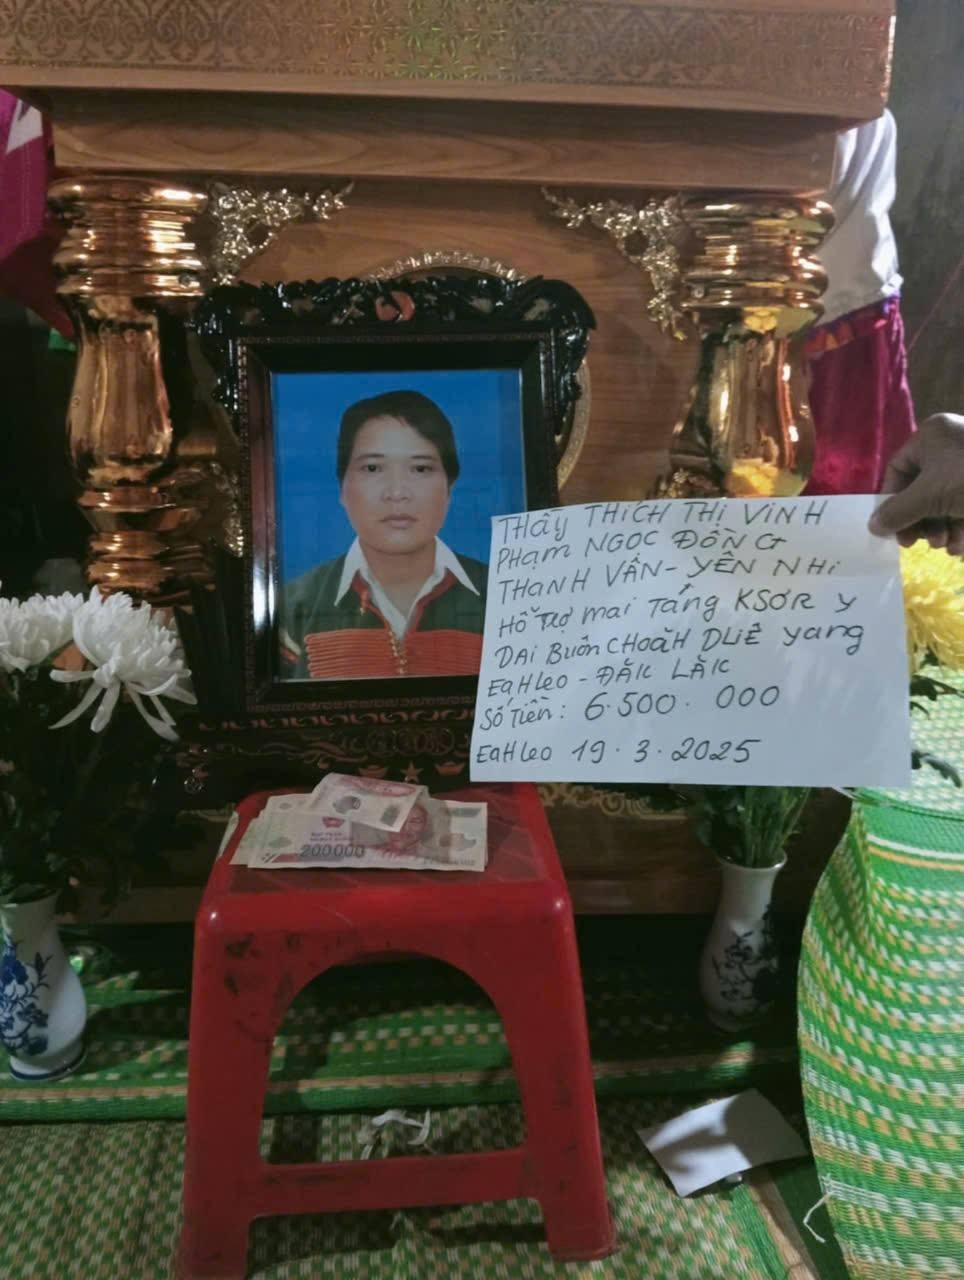 THẦY THÍCH THỊ VINH
PHẠM NGỌC ĐỒNG
THANH VÂN - YẾN NHI
HỖ TRỢ mai TÁNG KSƠR Y
DAI BUÔN CHOĂH DLIÊ yang
EaHleo - ĐĂK LĂK
SỐ TIỀN: 6.500.000
EaHleo 19.3.2025
200000